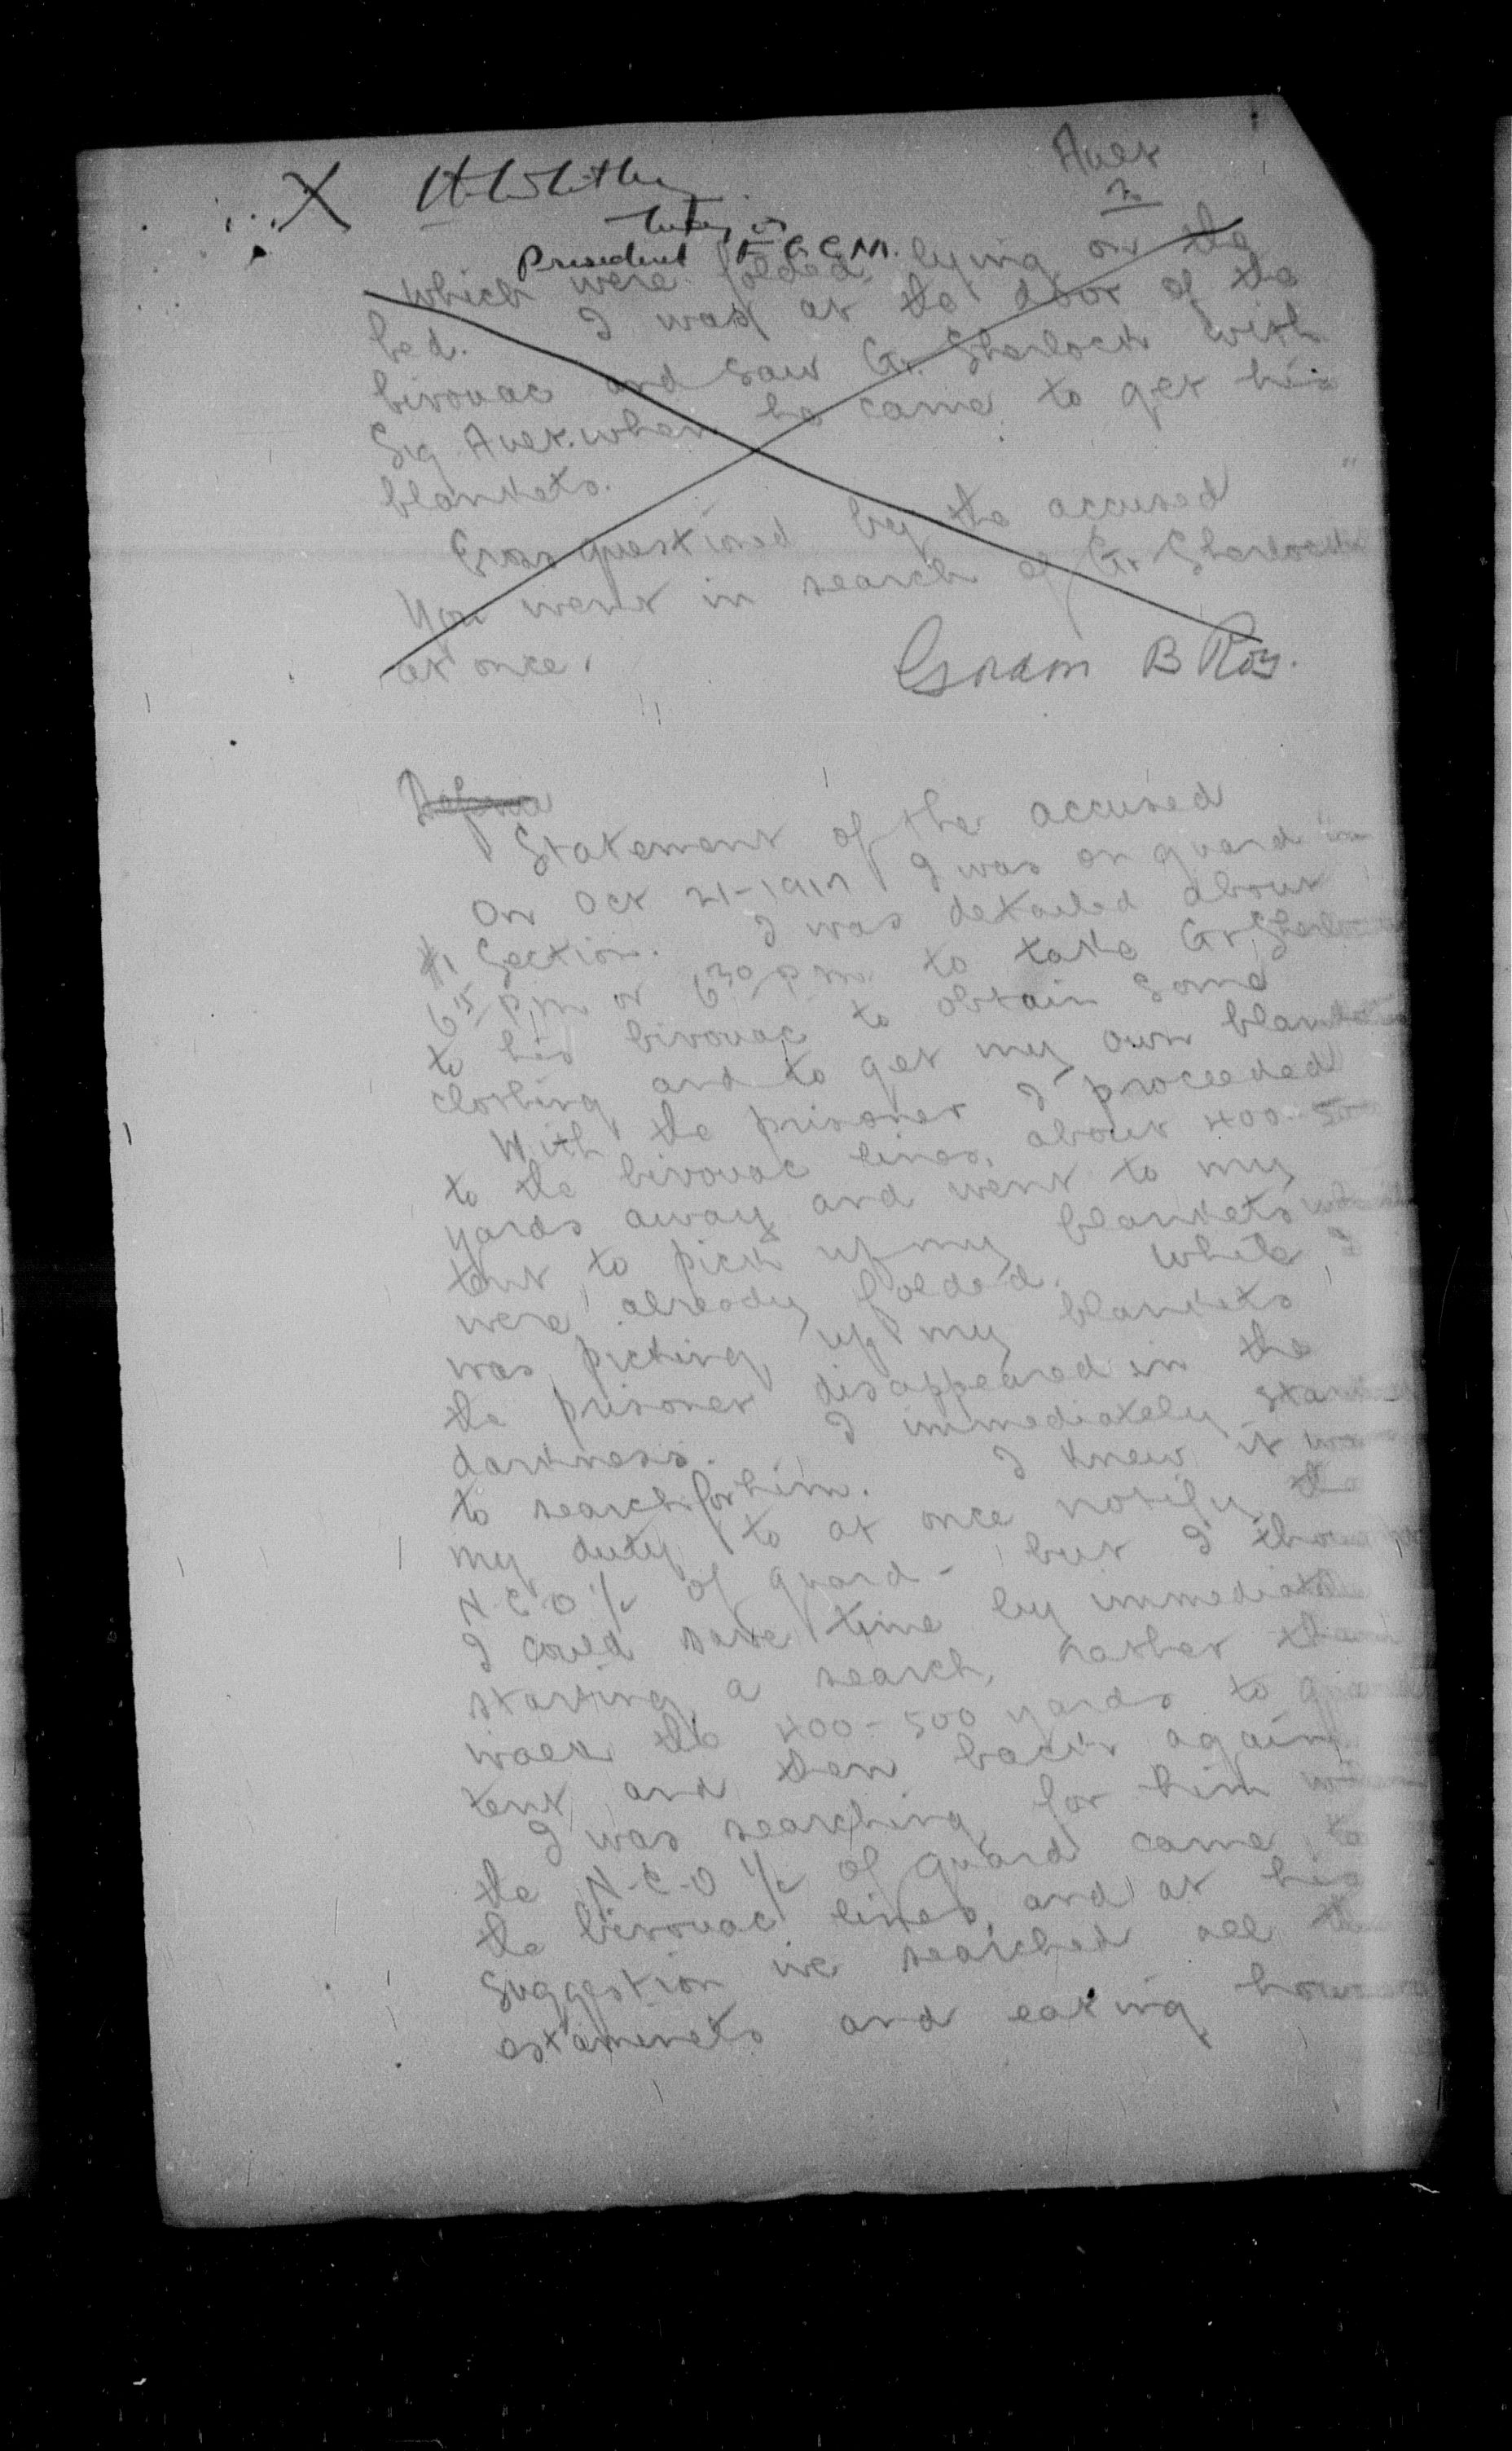 X
Auer
2
President F.G.C.M.
which were folded lying on the
bed. I was at the door of the
bivouac and saw Gr. Sherlock with
Sig Auer. when he came to get his
blankets.
Cross questioned by the accused
You went in search of Gr Sherlock
at once.
Gordon B Roy.
Statement of the accused
On Oct 21-1917 I was on guard in
#1 Section. I was detailed about
6 15/ pm or 6 30/ pm to take Gr Sherlock
to his bivouac to obtain some
clothing and to get my own blankets
With the prisoner I proceeded
to the bivouac lines, about 400-500
yards away and went to my
tent to pick up my blankets which
were already folded. While I
was picking up my blankets
the prisoner disappeared in the
darkness. I immediately started
to search for him. I knew it was
my duty to at once notify the
N.C.O. i/c of guard - but I thought
I could save time by immediately
starting a search, rather than
walk the 400-500 yards to guard
tent and then back again
I was searching for him when
the N-C-O i/c of guard came to
the bivouac lines, and at his
suggestion we searched all the
estaminets and eating houses